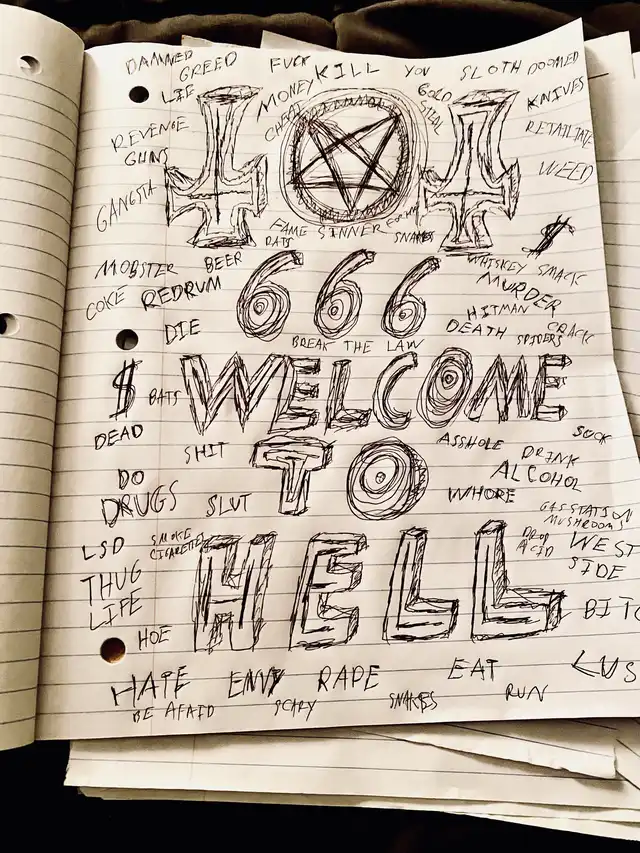 DAMNED GREED FUCK KILL YOU SLOTH DOOMED
LIE MONEY GOLD KNIVES
CHEAT STEAL
REVENGE RETAILIATE
GUNS WEED
GANGSTA
FAME SINNER
RATS SNAKES $
MOBSTER BEER 666 WHISKEY SMACK
COKE REDRUM MURDER
HITMAN
DIE BREAK THE LAW DEATH SPIDERS CRACK
$ BATS WELCOME
DEAD SUCK
SHIT TO ASSHOLE DRINK
DO ALCOHOL
DRUGS SLUT WHORE
GAS STATION
MUSHROOMS
LSD SMOKE DROP WEST
CIGARETTES ACID SIDE
THUG HELL
LIFE BITC
HOE
HATE ENVY RAPE EAT LUS
BE AFRAID SCARY SNAKES RUN